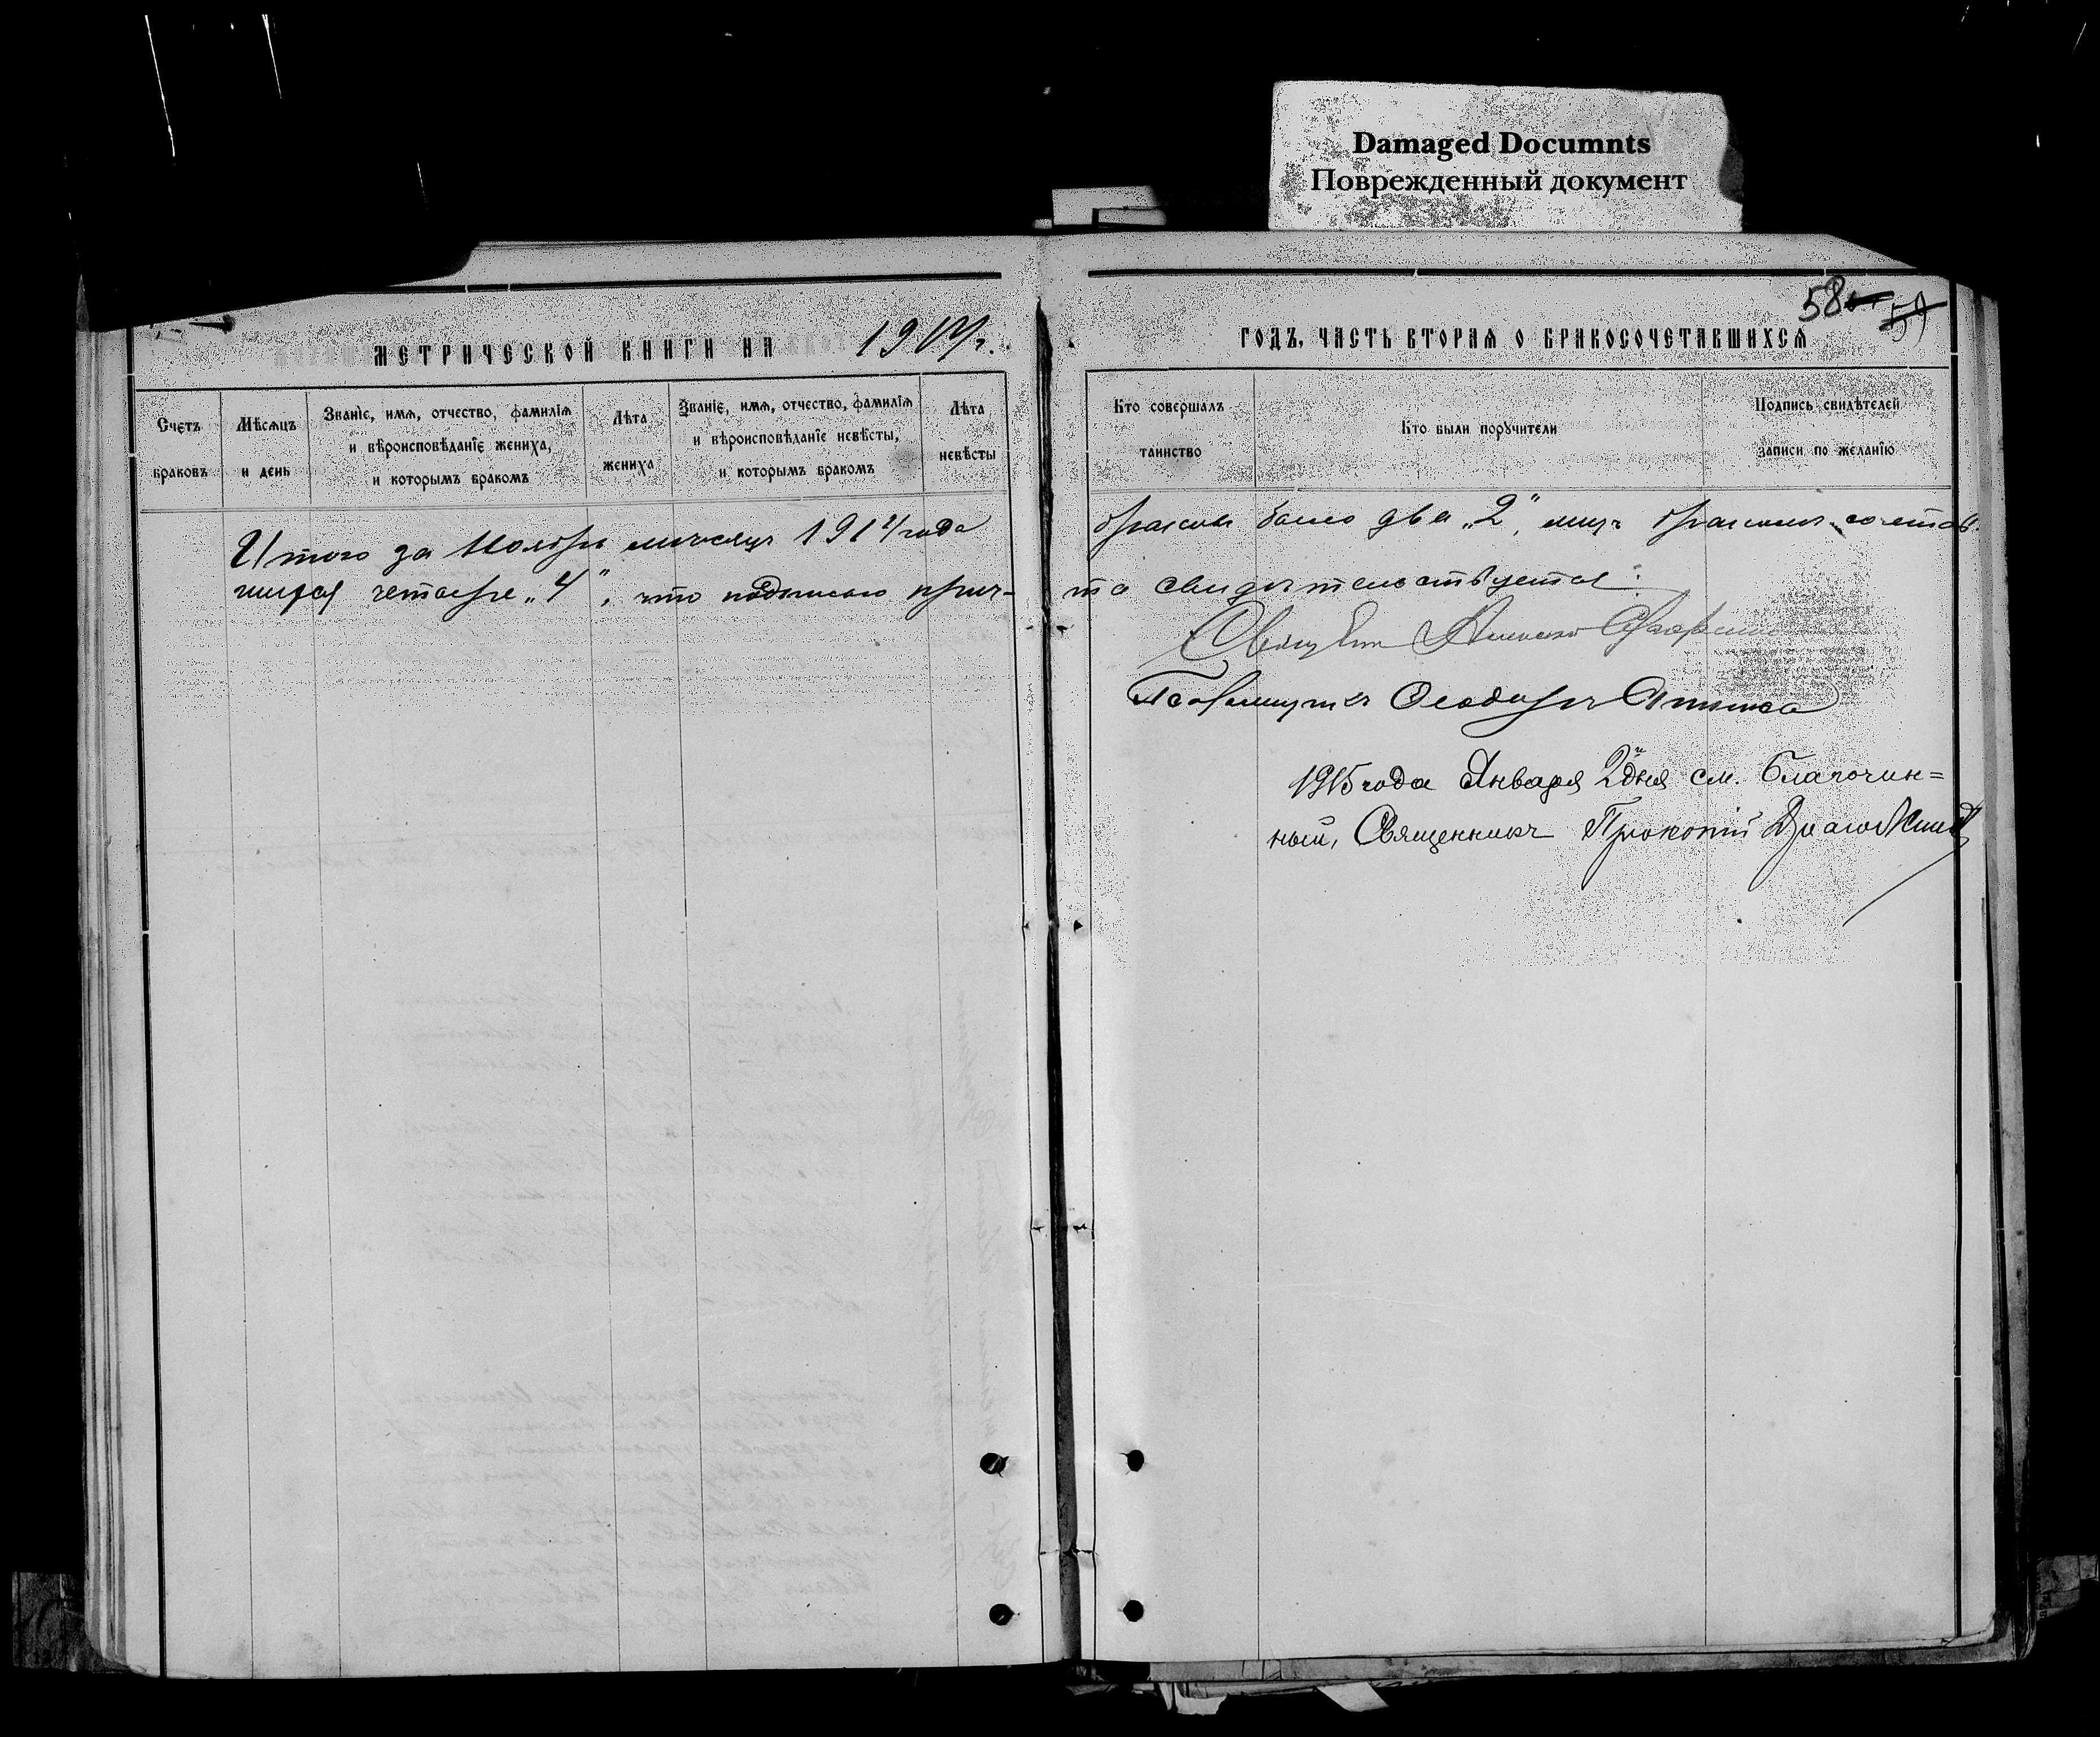 Damaged Documnts
Поврежденный документ
58
59
МЕТРИЧЕСКОЙ КНИГИ НА 1914 г.
ГОДЪ, ЧАСТЬ ВТОРАЯ О БРАКОСОЧЕТАВШИХСЯ
Счетъ браковъ
Мѣсяцъ и день
Званіе, имя, отчество, фамилія и вѣроисповѣданіе жениха, и которымъ бракомъ
Лѣта жениха
Званіе, имя, отчество, фамилія и вѣроисповѣданіе невѣсты, и которымъ бракомъ
Лѣта невѣсты
Кто совершалъ таинство
Кто были поручители
Подпись свидѣтелей записи по желанію
Итого за Ноябрь мѣсяцъ 1914 года браковъ было два „2", лицъ бракомъ сочетав-
шихся четыре „4", что подписью прич-та свидѣтельствуется:
Псаломщикъ Ѳеодоръ
1915 года Января 2 дня см. Благочин=
ный, Священникъ Прокопій